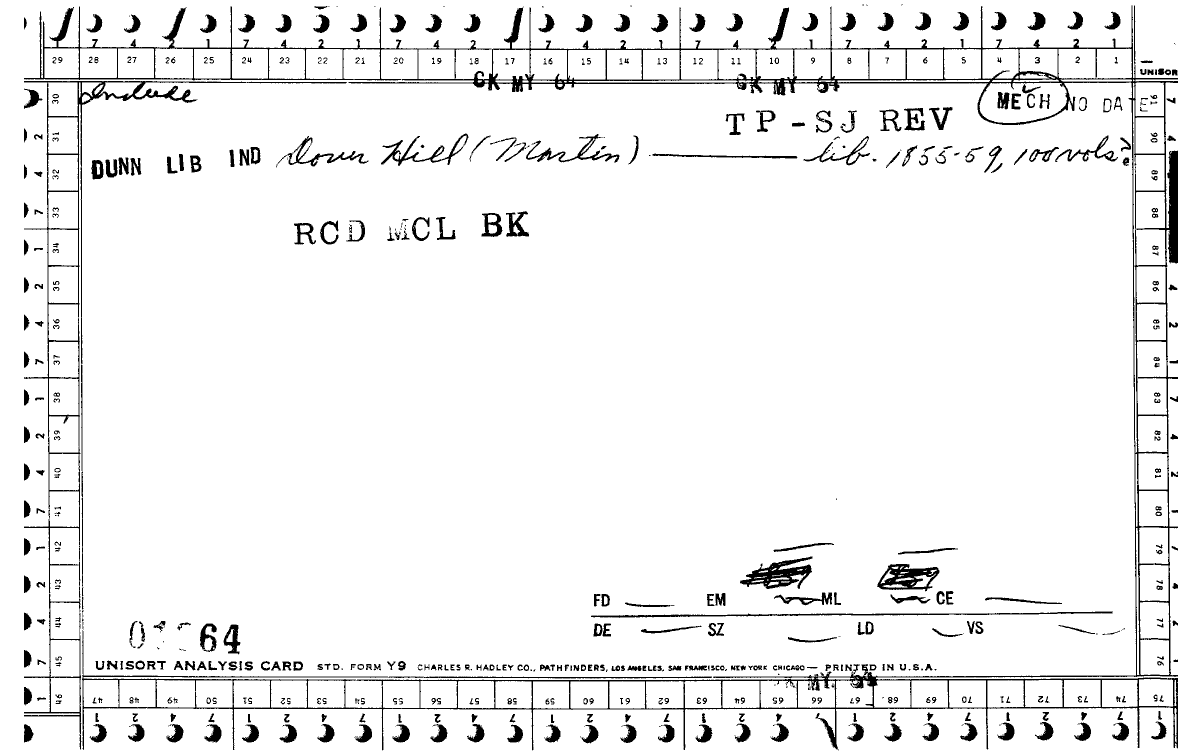 7 4 2 1 7 4 2 1 7 4 2 1 7 4 2 1 7 4 2 1 7 4 2 1
29 28 27 26 25 24 23 22 21 20 19 18 17 16 15 14 13 12 11 10 9 8 7 6 5 4 3 2 1
UNISOR
CK MY 64 CK MY 64
Include
MECH NO DATE
TP-SJ REV
DUNN LIB IND Dover Hill (Martin) — lib. 1855-59, 100 vols.
RCD MCL BK
30 31 32 33 34 35 36 37 38 39 40 41 42 43 44 45 46
91 90 89 88 87 86 85 84 83 82 81 80 79 78 77 76 75
FD EM ML CE
DE SZ LD VS
64
UNISORT ANALYSIS CARD STD. FORM Y9 CHARLES R. HADLEY CO., PATHFINDERS, LOS ANGELES, SAN FRANCISCO, NEW YORK CHICAGO — PRINTED IN U.S.A.
CK MY. 64
47 48 49 50 51 52 53 54 55 56 57 58 59 60 61 62 63 64 65 66 67 68 69 70 71 72 73 74
1 2 4 7 1 2 4 7 1 2 4 7 1 2 4 7 1 2 4 7 1 2 4 7 1 2 4 7 1